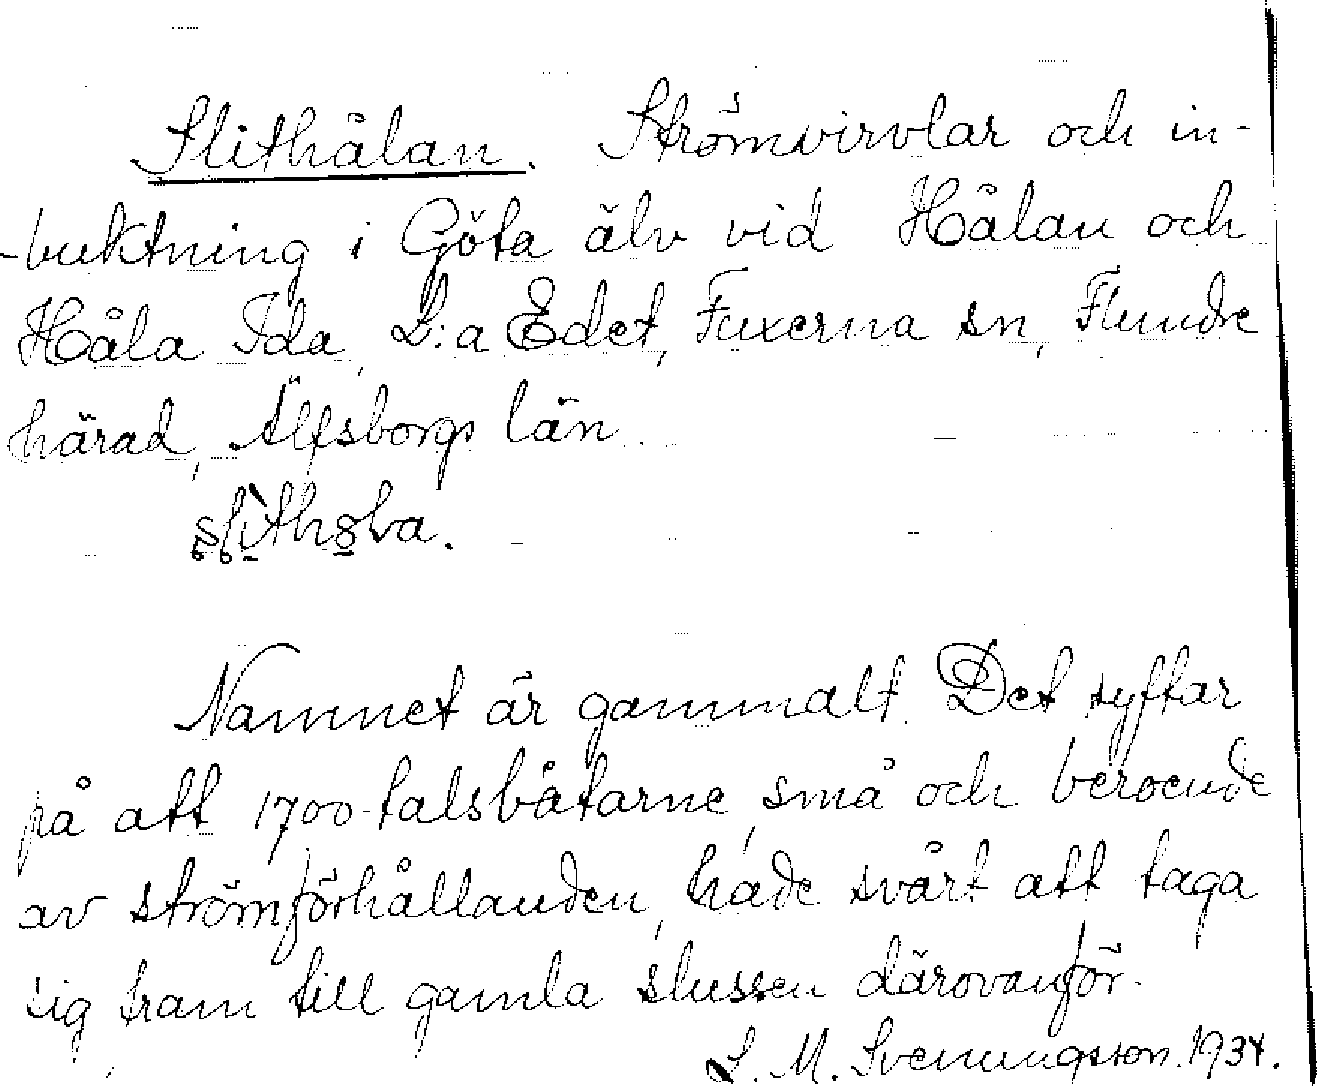 Slithålan. Strömvirvlar och in-
-buktning i Göta älv vid Hålan och
Håla Ida, L:a Edet, Fuxerna sn, Flundre
härad, Älfsborgs län.
Namnet är gammalt. Det syftar
på att 1700-talsbåtarne, små och beroende
av strömförhållanden, hade svårt att taga
sig fram till gamla slussen därovanför.
S. M. Svenungsson. 1934.